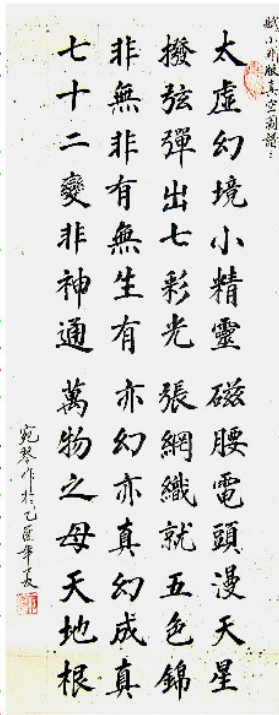 賦小非股真空圖譜：
太虛幻境小精靈 磁腰電頭漫天星
撥弦彈出七彩光 張網織就五色錦
非無非有無生有 亦幻亦真幻成真
七十二變非神通 萬物之母天地根
宛琴作於乙酉年夏